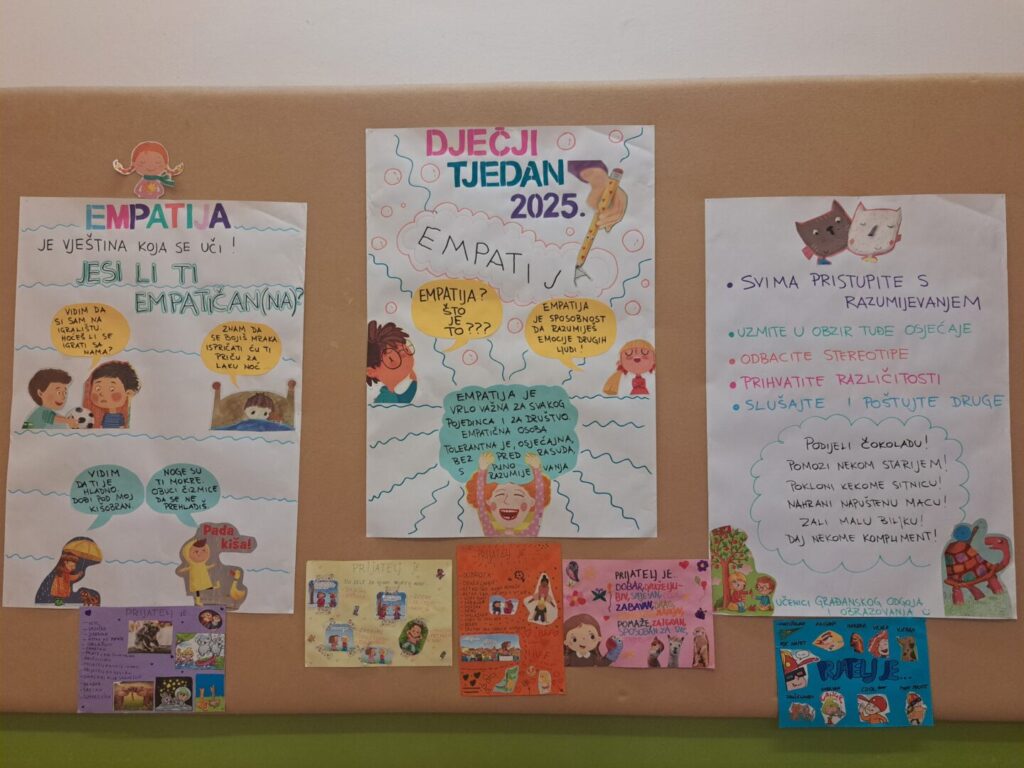 EMPATIJA
JE VJEŠTINA KOJA SE UČI!
JESI LI TI
EMPATIČAN(NA)?
VIDIM DA
SI SAM NA
IGRALIŠTU.
HOĆEŠ LI SE
IGRATI SA
NAMA?
ZNAM DA
SE BOJIŠ MRAKA
ISPRIČATI ĆU TI
PRIČU ZA
LAKU NOĆ
VIDIM
DA TI JE
HLADNO.
DOĐI POD MOJ
KIŠOBRAN.
NOGE SU
TI MOKRE.
OBUCI ČIZMICE
DA SE NE
PREHLADIŠ.
Pada
kiša!
DJEČJI
TJEDAN
2025.
EMPATIJA
EMPATIJA?
ŠTO
JE
TO???
EMPATIJA
JE SPOSOBNOST
DA RAZUMIJEŠ
EMOCIJE DRUGIH
LJUDI!
EMPATIJA JE
VRLO VAŽNA ZA SVAKOG
POJEDINCA I ZA DRUŠTVO
EMPATIČNA OSOBA
TOLERANTNA JE, OSJEĆAJNA,
BEZ PREDRASUDA,
S PUNO
RAZUMIJEVANJA
• SVIMA PRISTUPITE S
RAZUMIJEVANJEM
• UZMITE U OBZIR TUĐE OSJEĆAJE
• ODBACITE STEREOTIPE
• PRIHVATITE RAZLIČITOSTI
• SLUŠAJTE I POŠTUJTE DRUGE
PODIJELI ČOKOLADU!
POMOZI NEKOM STARIJEM!
POKLONI NEKOME SITNICU!
NAHRANI NAPUŠTENU MACU!
ZALI MALU BILJKU!
DAJ NEKOME KOMPLIMENT!
UČENICI GRAĐANSKOG ODGOJA
I OBRAZOVANJA
PRIJATELJ JE
PRIJATELJ JE
PRIJATELJ JE
PRIJATELJ JE
DOBAR,
ZABAVAN,
POMAŽE, ZAIGRAN,
SPOSOBAN ZA SVE.
PRIJATELJ JE...